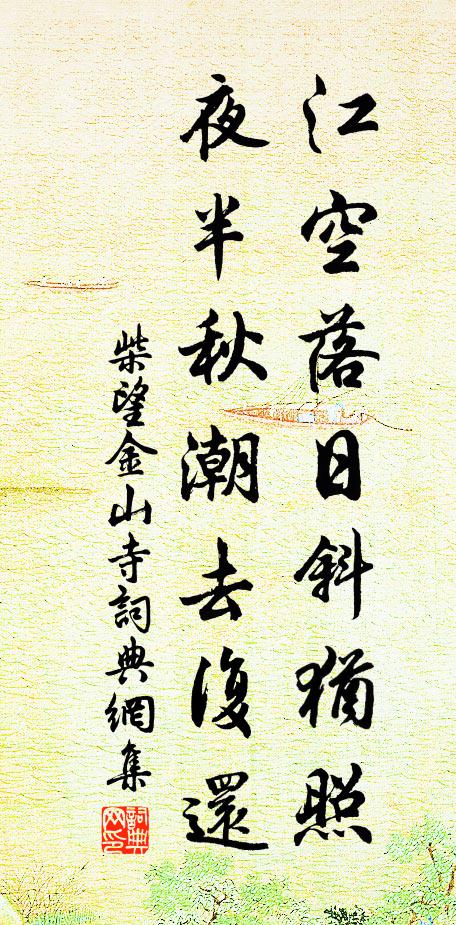 江空落日斜猶照
夜半秋潮去復還
柴望金山寺詞典網集
詞典網印